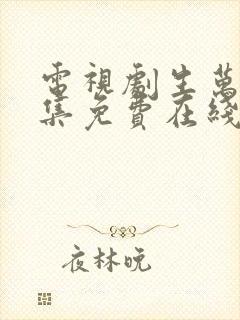 電視劇生萬
集免費在綫
夜林晚